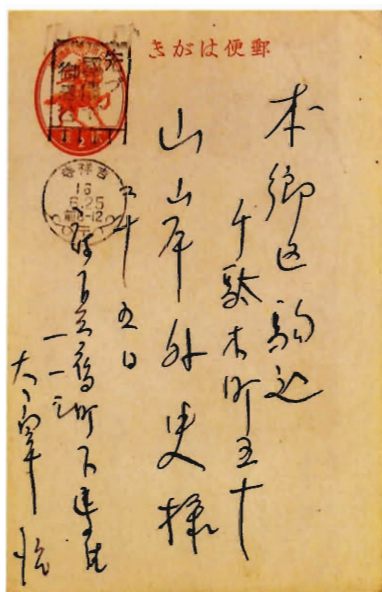 郵便はがき
吉祥寺
16
6.25
前8-12
本郷区駒込
千駄木町五十
山岸外史様
二十五日
府下三鷹町下連雀
一一三
太宰治